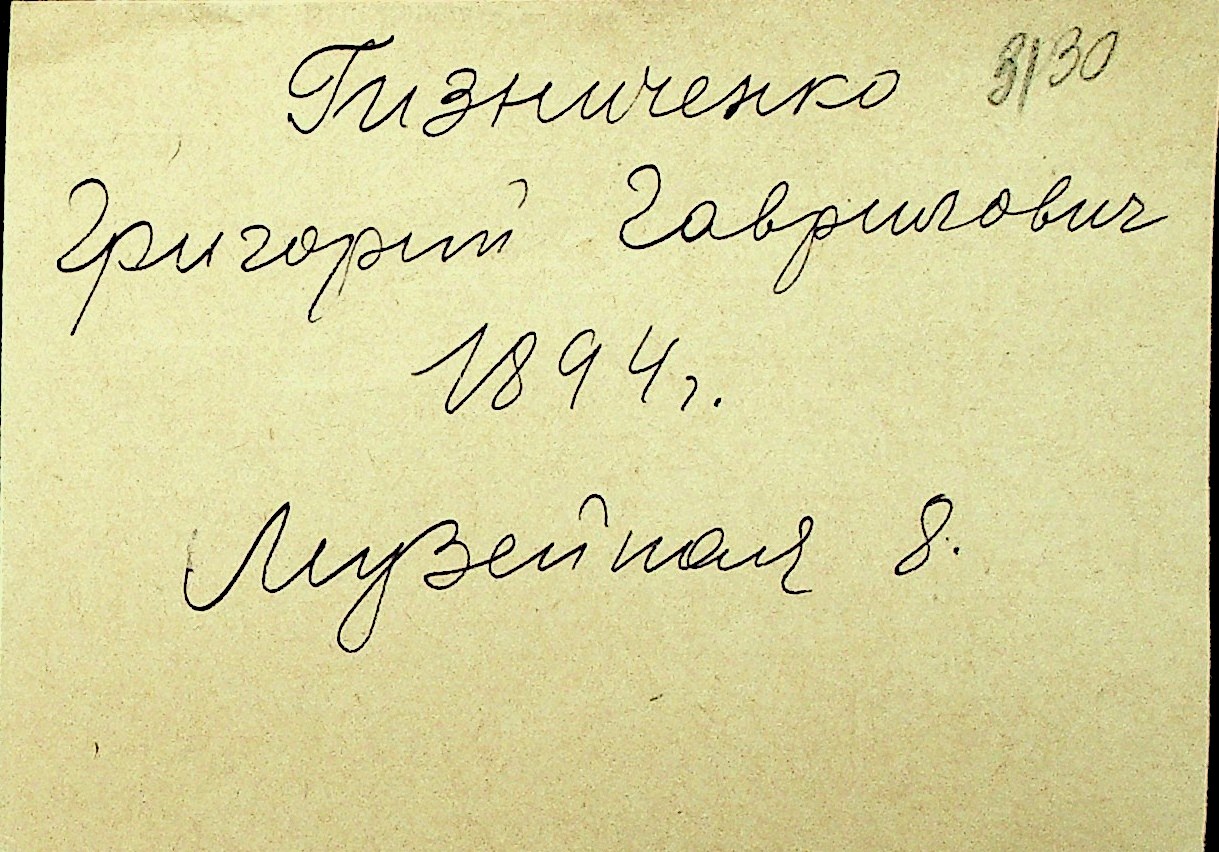 Гизниченко 3/30
Григорий Гаврилович
1894 г.
Музейная 8.